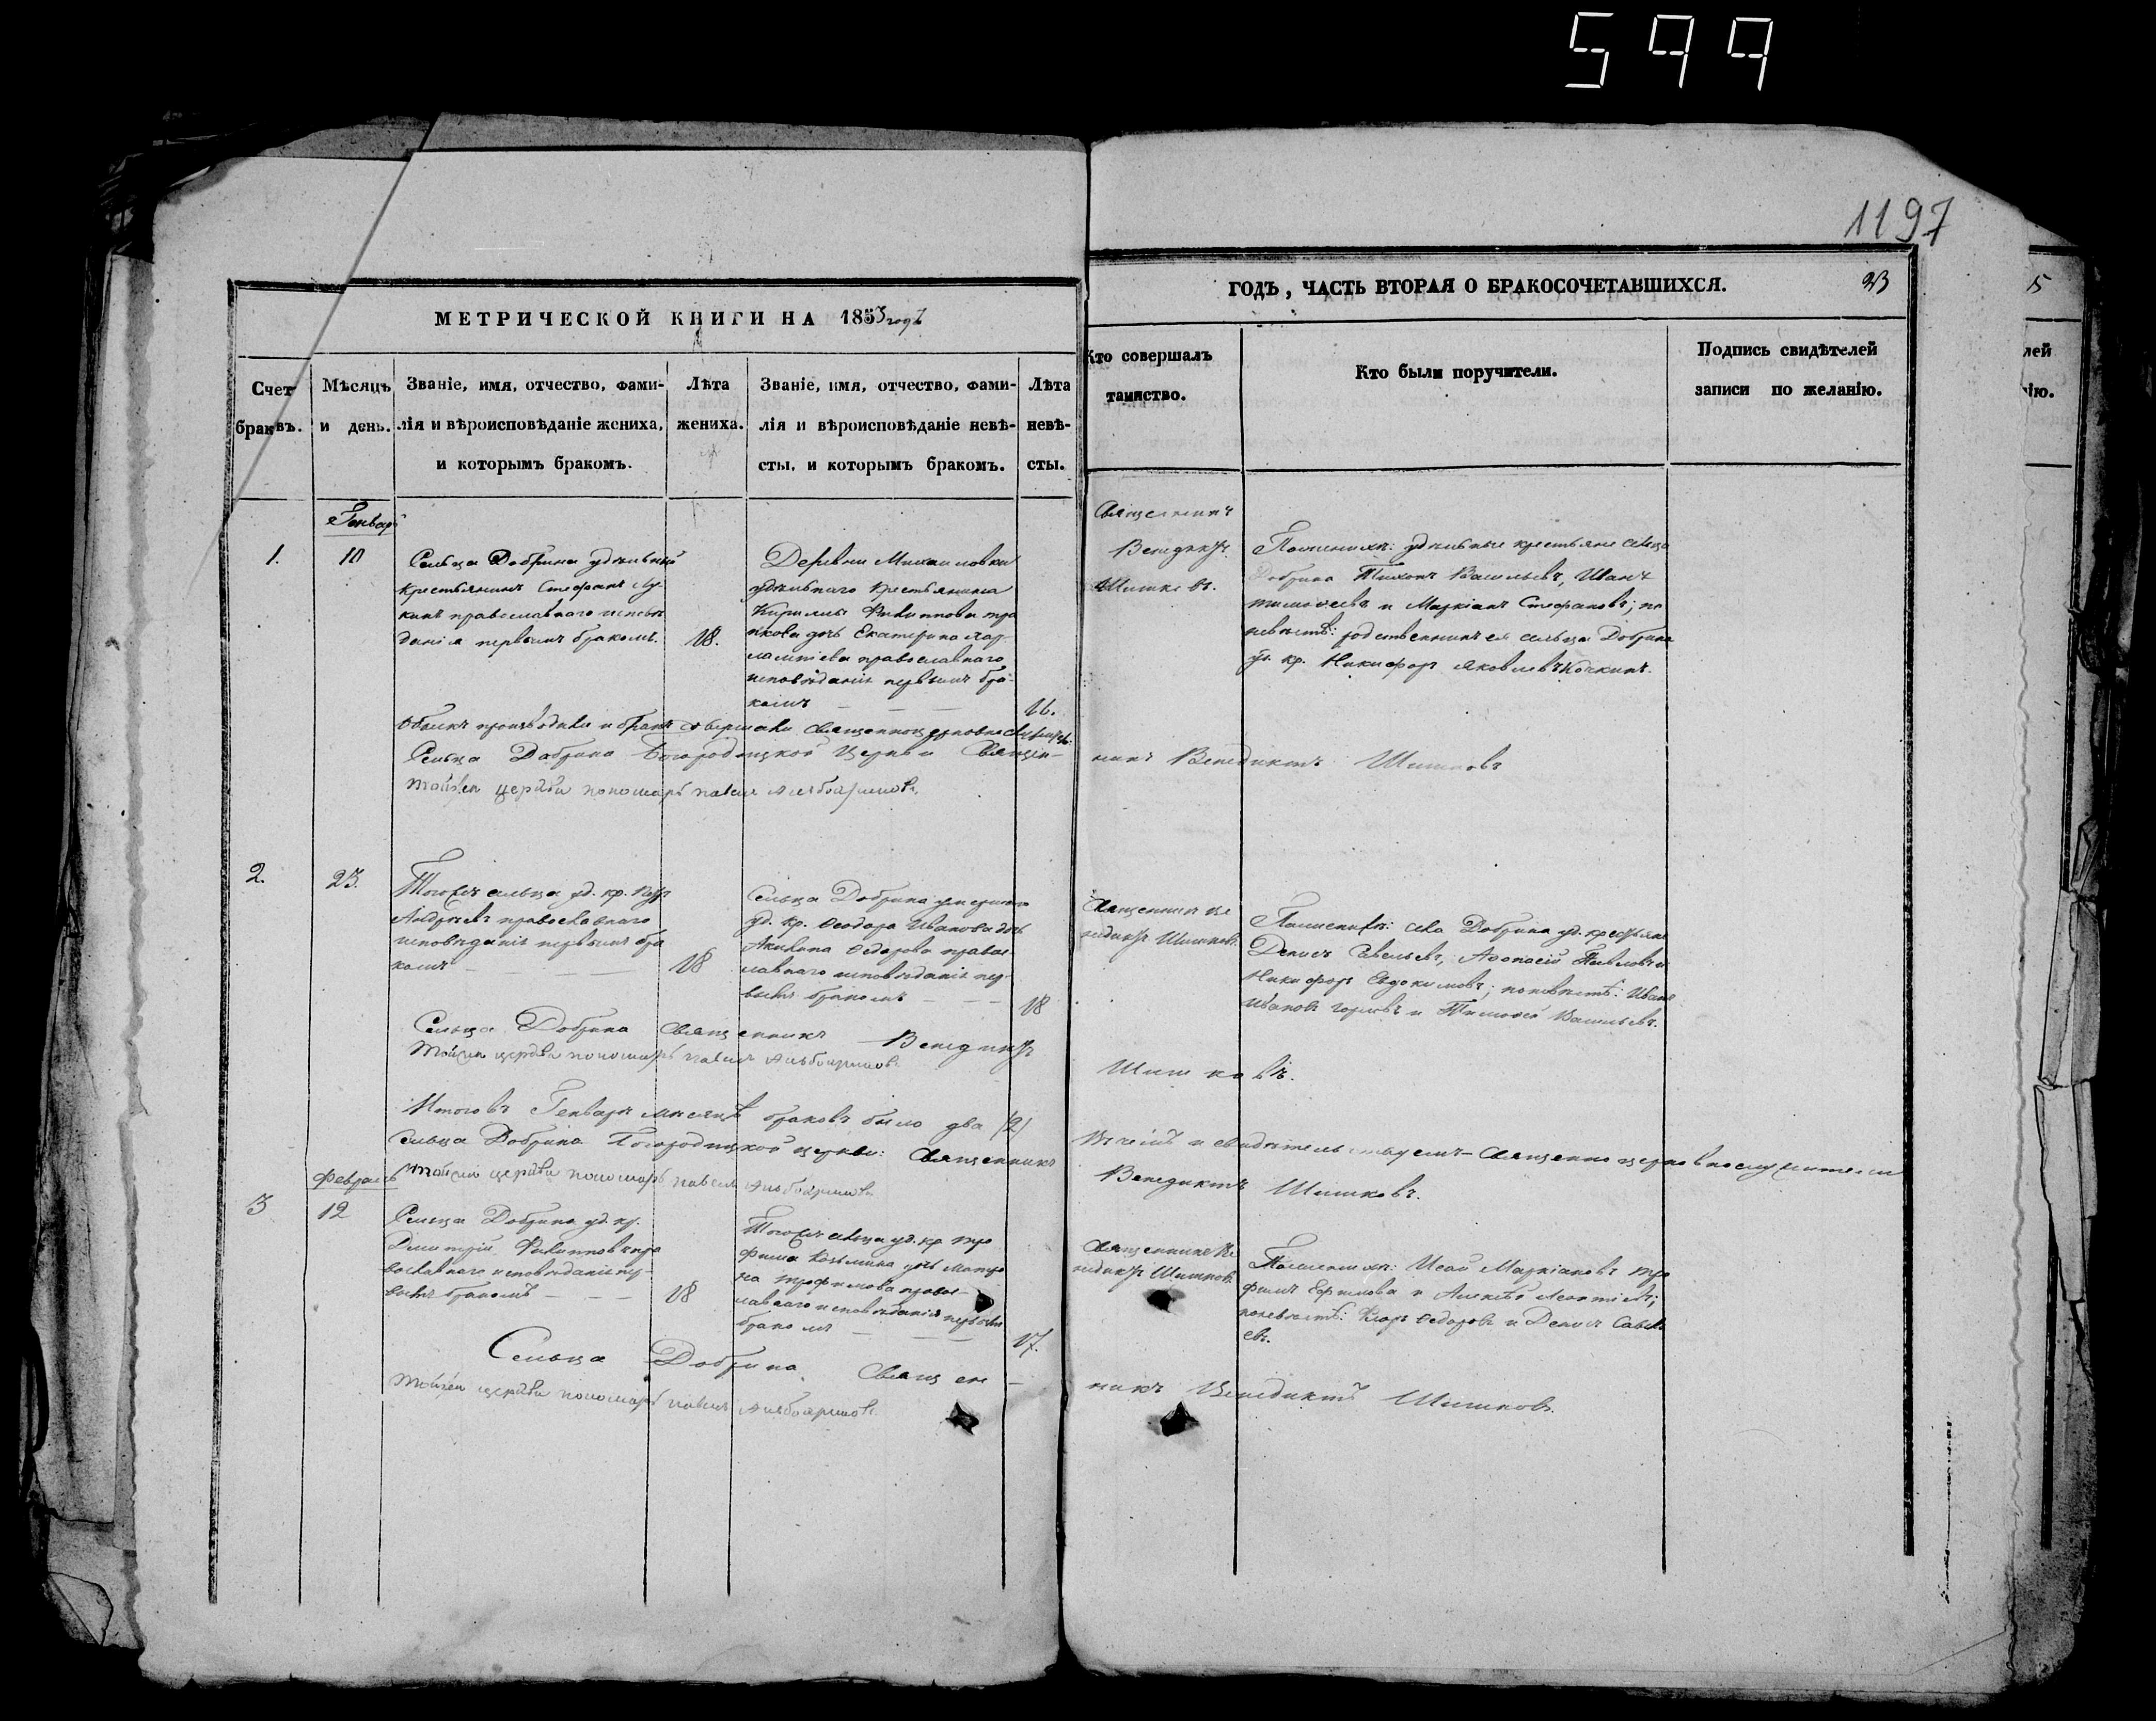 599
1197
МЕТРИЧЕСКОЙ КНИГИ НА 1853 годъ
ГОДЪ, ЧАСТЬ ВТОРАЯ О БРАКОСОЧЕТАВШИХСЯ.
23
Счет браквъ.
Мѣсяцъ и день.
Званіе, имя, отчество, фами-
лія и вѣроисповѣданіе жениха,
и которымъ бракомъ.
Лѣта жениха.
Званіе, имя, отчество, фами-
лія и вѣроисповѣданіе невѣ-
сты, и которымъ бракомъ.
Лѣта невѣ-
сты.
Кто совершалъ
таинство.
Кто были поручители.
Подпись свидѣтелей
записи по желанію.
Генварь
1.
10
Сельца Добрина удѣльный
крестьянинъ Стефанъ Лу-
кинъ православнаго исповѣ
данія первымъ бракомъ.
18.
Деревни Михайловки
удѣльнаго крестьянина
Кирилы Филиппова
дочь Екатерина
православнаго
исповѣданія первымъ бра-
комъ
16.
Священникъ
Венедиктъ
Шишковъ.
По женихѣ: удѣльные крестьяне сельца
Добрина Тихонъ Васильевъ, Иванъ
Тимофеевъ и Маркіанъ Стефановъ; по
невѣстѣ: родственникъ ея сельца Добрина
уд. кр. Никифоръ Яковлевъ Кочкинъ.
Обыскъ производили и бракъ совершали священноцерковнослужители:
Сельца Добрина Богородицкой Церкви Священ-
никъ Венедиктъ Шишковъ
Тойже церкви пономарь Павелъ
2.
23.
Тогожъ сельца уд. кр. Петръ
Андреевъ православнаго
исповѣданія первымъ бра
комъ
18
Сельца Добрина умершаго
уд. кр. Феодора Иванова дочь
Акилина Федорова правос-
лавнаго исповѣданія пер-
вымъ бракомъ
18
Священникъ Ве
недиктъ Шишковъ.
По женихѣ: сельца Добрина уд. крестьяне
Денисъ Савельевъ, Афонасій Павловъ и
Никифоръ Евдокимовъ; по невѣстѣ: Иванъ
Ивановъ и Тимофей Васильевъ.
Сельца Добрина Священникъ Венедиктъ
Шишковъ.
Тойже церкви пономарь Павелъ
Итого въ Генварѣ мѣсяцѣ браковъ было два /2/
Въ чемъ и свидѣтельствуемъ Священно церковнослужители
Сельца Добрина Богородицкой церкви: Священникъ
Венедиктъ Шишковъ.
Тойже церкви пономарь Павелъ
Февраль
3
12
Сельца Добрина уд. кр.
Димитрій Филипповъ пра
вославнаго исповѣданія пер-
вымъ бракомъ
18
Тогожъ сельца уд. кр. Тро
фима Козьмина дочь Матро
на Трофимова правос-
лавнаго исповѣданія первымъ
бракомъ
17.
Священникъ Ве
недиктъ Шишковъ.
По женихѣ: Исай Маркіановъ Тро
фимъ Ефимова и Алексѣй Леонтіевъ;
по невѣстѣ: Егоръ Федоровъ и Денисъ Савель
евъ.
Сельца Добрина Священ-
никъ Венедиктъ Шишковъ.
Тойже церкви пономарь Павелъ
5
лей
ію.